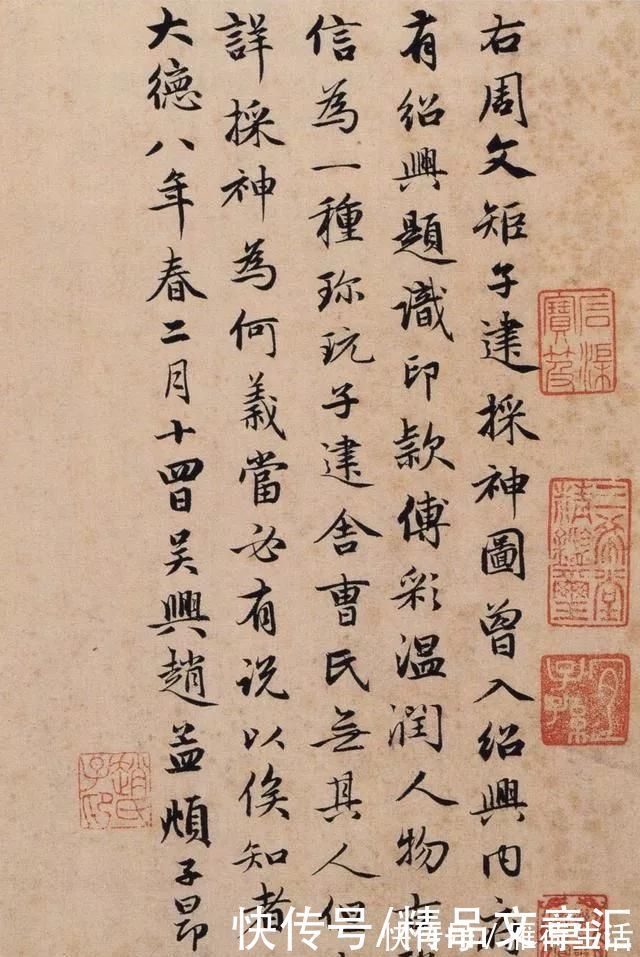 右周文矩子建採神圖曾入紹興內
有紹興題識印款傅彩温潤人物
信為一種珎玩子建舍曹氏無其人但
詳採神為何義當必有説以俟知者
大德八年春二月十四日吴興趙孟頫子昂
三希堂精鑑璽
宜子孫
快传号/精品文章汇